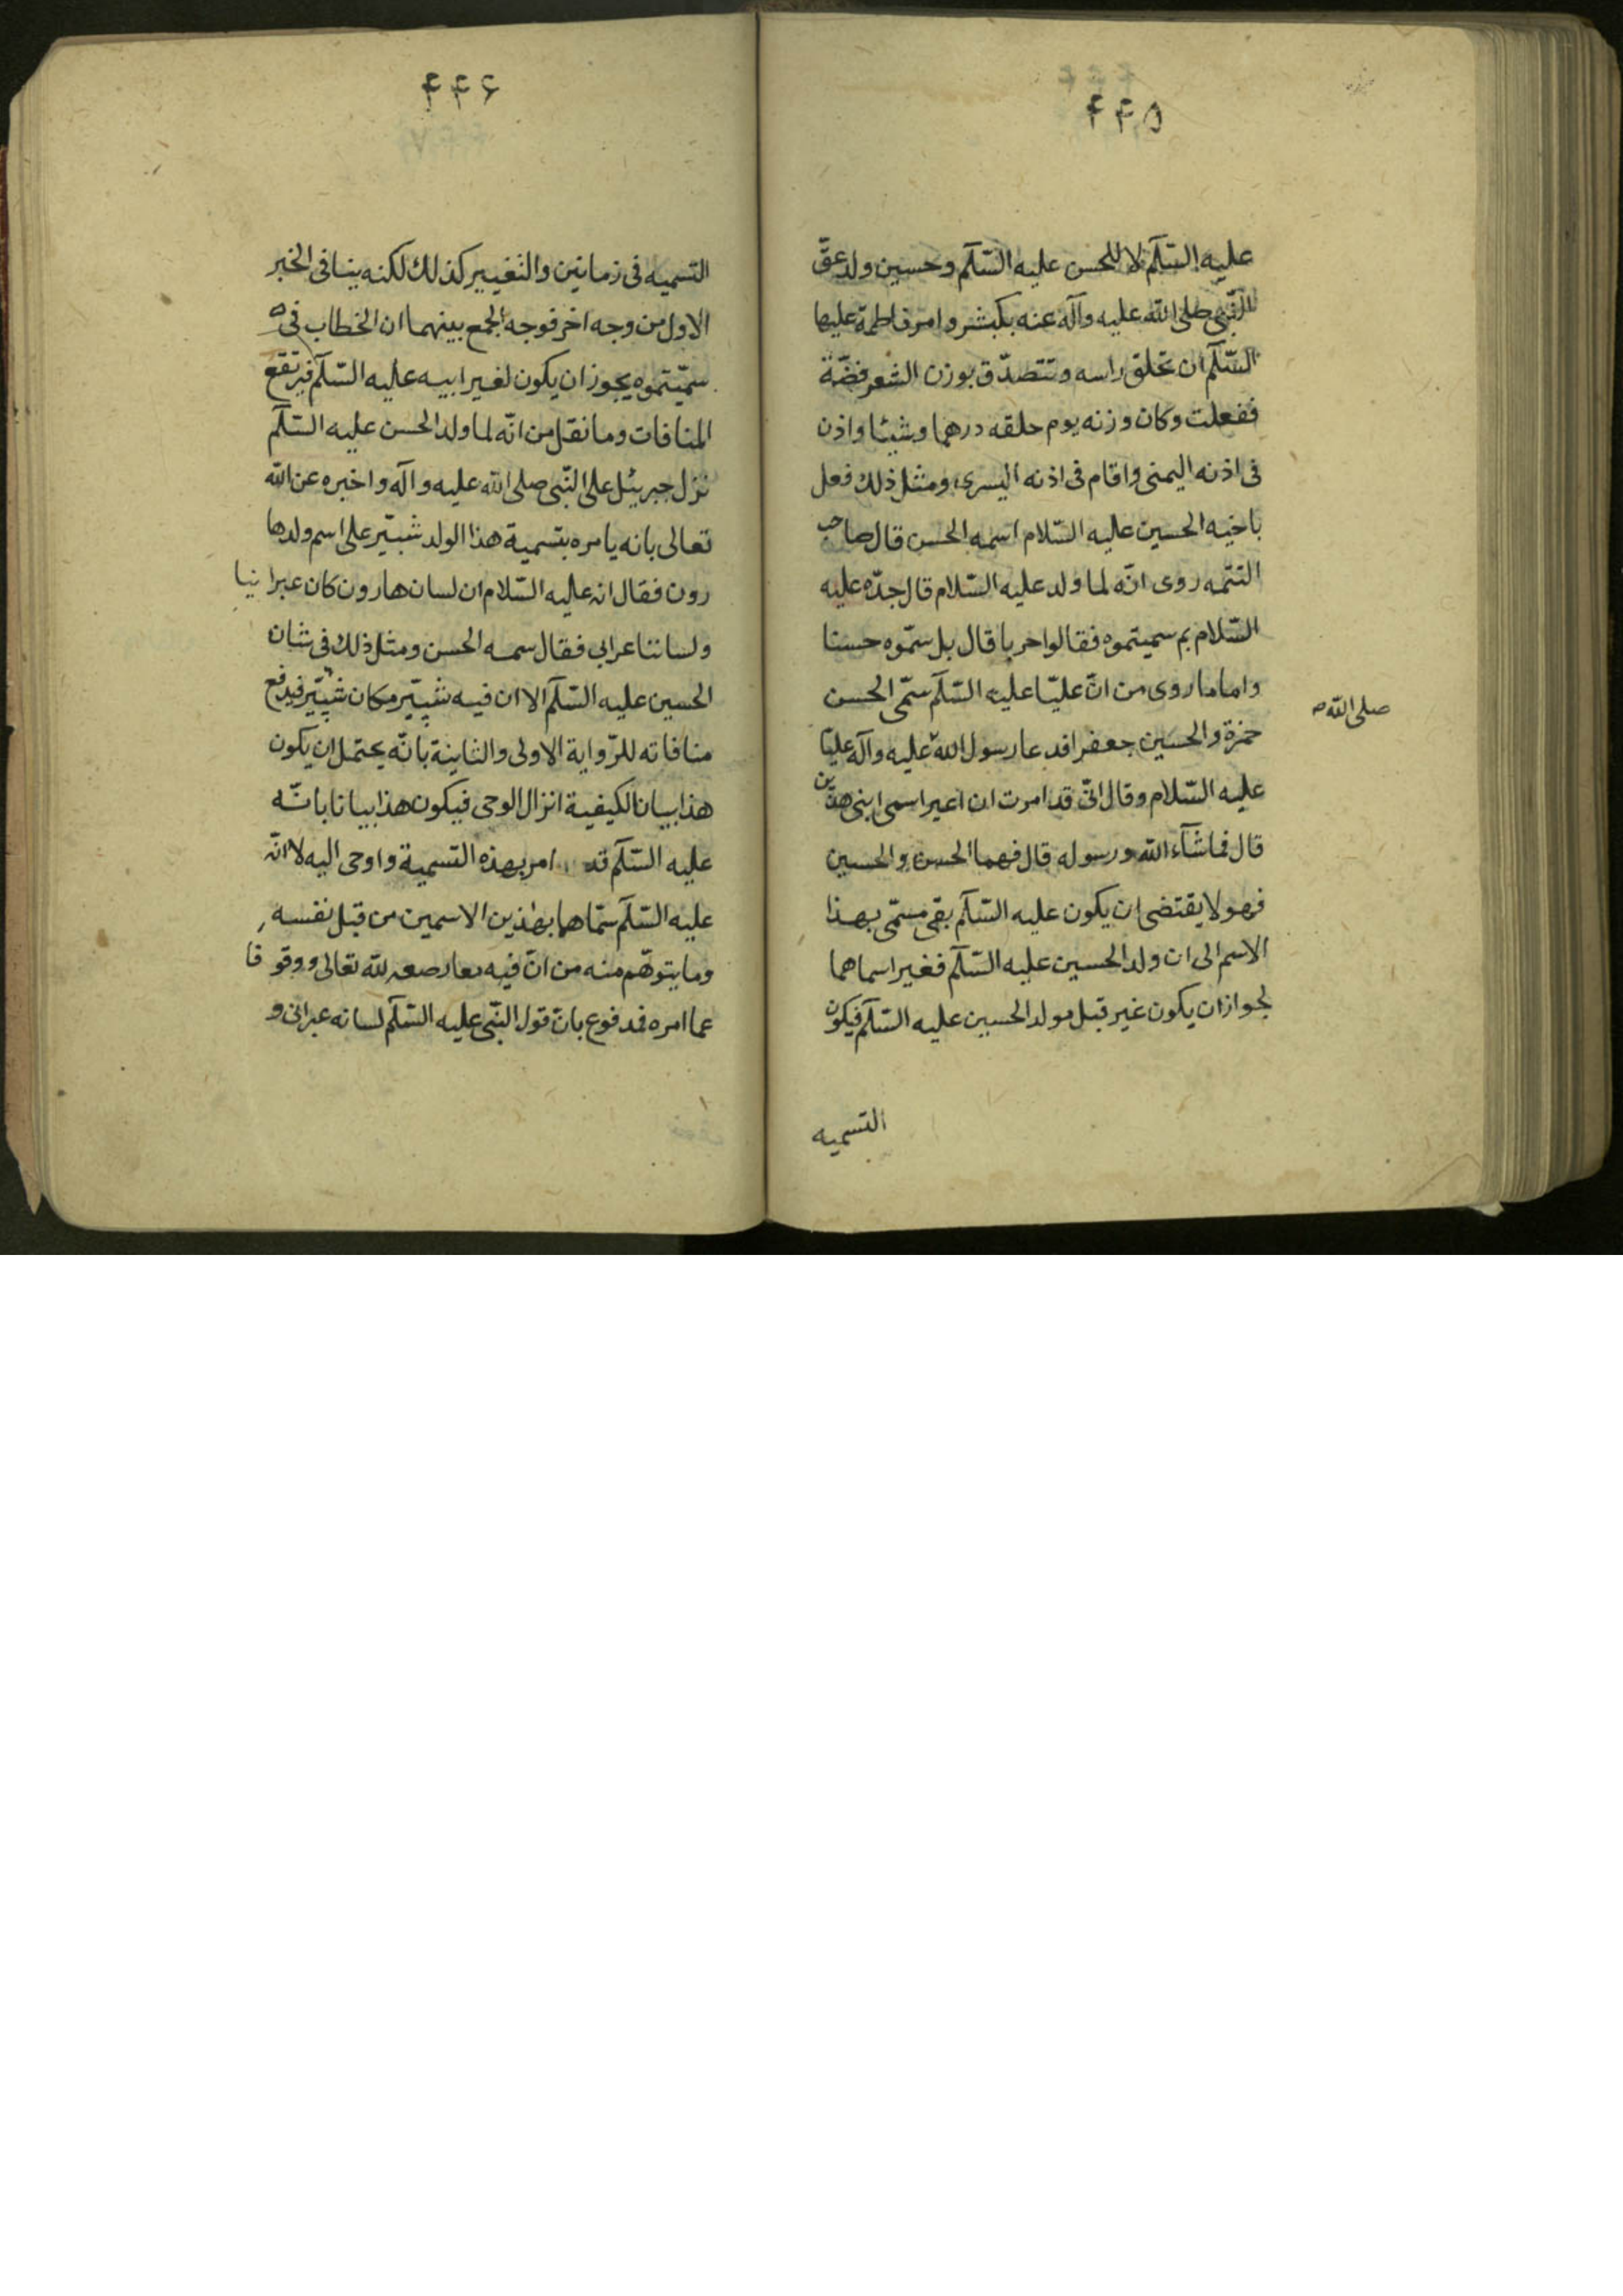 ۴۴۵
عليه السّلم لا للحسن عليه السّلم وحسين ولد عقّ
النّبى صلى اللّه عليه وآله عنه بكبش وامر فاطمة عليها
السّلم ان تحلق راسه وتتصدّق بوزن الشعر فضّة
ففعلت وكان وزنه يوم حلقه درهما وشيئا واذن
فى اذنه اليمنى واقام فى اذنه اليسرى ومثل ذلك فعل
باخيه الحسين عليه السّلام اسمه الحسن قال صاحب
التتمه روى انّه لما ولد عليه السّلام قال جدّه عليه
السّلام بم سميتموه فقالوا حربا قال بل سمّوه حسنا
واما ما روى من انّ عليّا عليه السّلم سمّى الحسن
صلى اللّه
حمزة والحسين جعفرا فدعا رسول اللّه عليه وآله عليّا
عليه السّلام وقال انّى قد امرت ان اغير اسمى ابنى هذين
قال فما شآء اللّه ورسوله قال فهما الحسن والحسين
فهو لا يقتضى ان يكون عليه السّلم بقى مسمّى بهذا
الاسم الى ان ولد الحسين عليه السّلم فغير اسماهما
لجواز ان يكون غير قبل مولد الحسين عليه السّلم فيكون
التسميه
۴۴۶
التسميه فى زمانين والتغيير كذلك لكنه ينافى الخبر
الاول من وجه اخر فوجه الجمع بينهما ان الخطاب فى
سمّيتموه يجوز ان يكون لغير ابيه عليه السّلم فيرتفع
المنافات وما نقل من انّه لما ولد الحسن عليه السّلم
نزل جبريئل على النّبى صلى اللّه عليه وآله واخبره عن اللّه
تعالى بانه يامره بتسمية هذا الولد شبّير على اسم ولد ها
رون فقال انه عليه السّلام ان لسان هارون كان عبرا نيا
ولساننا عرابى فقال سمه الحسن ومثل ذلك فى شان
الحسين عليه السّلم الا ان فيه شبّير مكان شبّير فيدفع
منافاته للرّواية الاولى والثانية بانّه يحتمل ان يكون
هذا بيان الكيفية انزال الوحى فيكون هذا بيانا بانّه
عليه السّلم قد امر بهذه التسمية واوحى اليه لا انّه
عليه السّلم سمّاهما بهذين الاسمين من قبل نفسه
وما يتوهّم منه من انّ فيه للّه تعالى ووقو فا
عما امره فمدفوع بانّ قول النّبى عليه السّلم لسانه عبرانى و